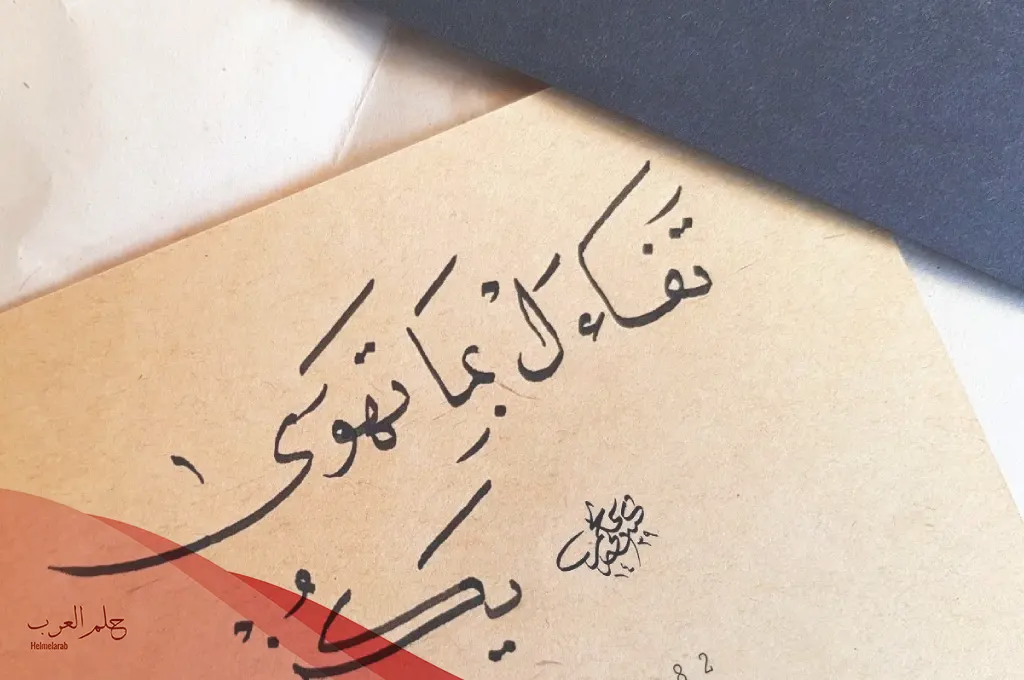 تَفَاءَلْ بِمَا تَهْوَى
يَكُنْ
حلم العرب
Helmelarab
82